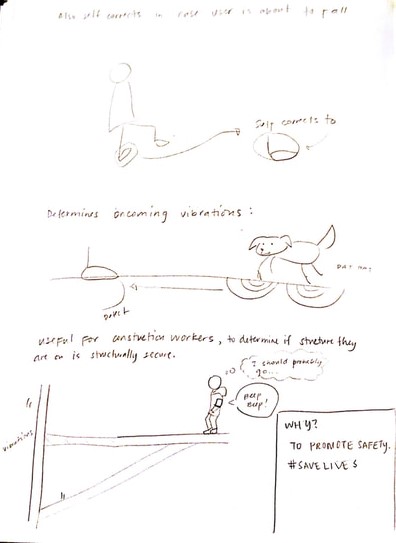 Also self corrects in case user is about to fall
Self corrects to
Determines oncoming vibrations:
PAT PAT
Device
USEFUL FOR construction workers, to determine if structure they
are on is structurally secure.
I should probably
go...
BEEP
BEEP!
vibrations
WHY?
TO PROMOTE SAFETY.
#SAVELIVES